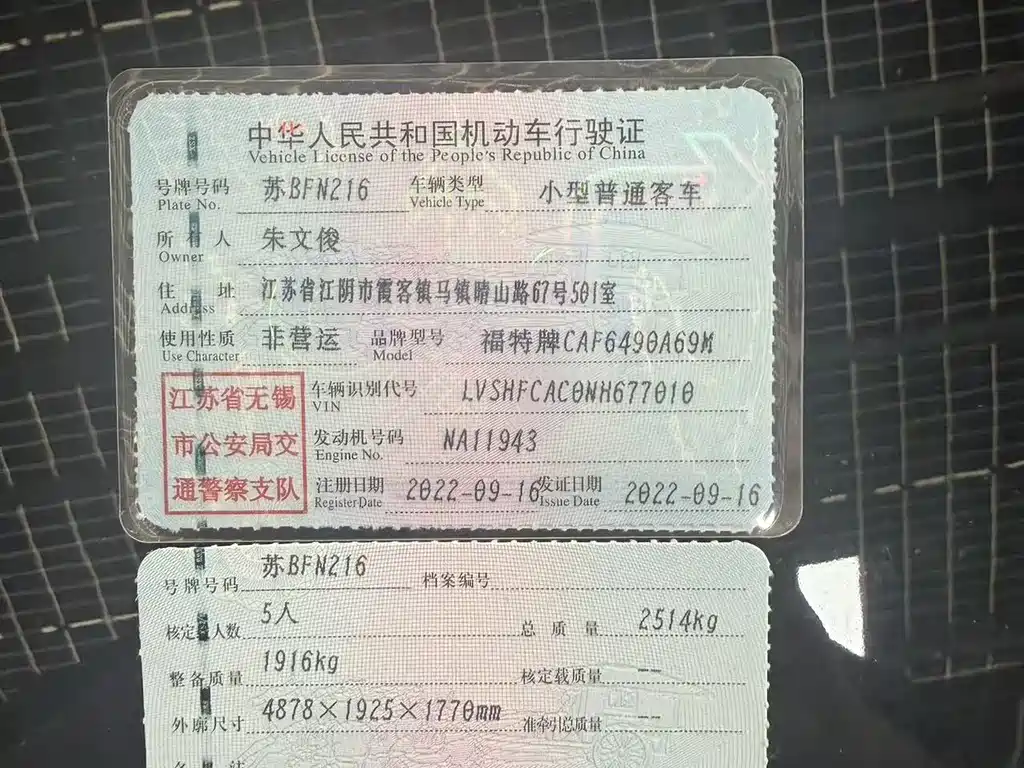 中华人民共和国机动车行驶证
Vehicle License of the People's Republic of China
号牌号码 苏BFN216 车辆类型 小型普通客车
Plate No. Vehicle Type
所有人 朱文俊
Owner
住址 江苏省江阴市霞客镇马镇晴山路67号501室
Address
使用性质 非营运 品牌型号 福特牌CAF6490A69M
Use Character Model
江苏省无锡 车辆识别代号 LVSHFCAC0NH677010
VIN
市公安局交 发动机号码 NA11943
Engine No.
通警察支队 注册日期 2022-09-16 发证日期 2022-09-16
Register Date Issue Date
号牌号码 苏BFN216 档案编号
核定人数 5人 总质量 2514kg
整备质量 1916kg 核定载质量 --
外廓尺寸 4878×1925×1770mm 准牵引总质量 --